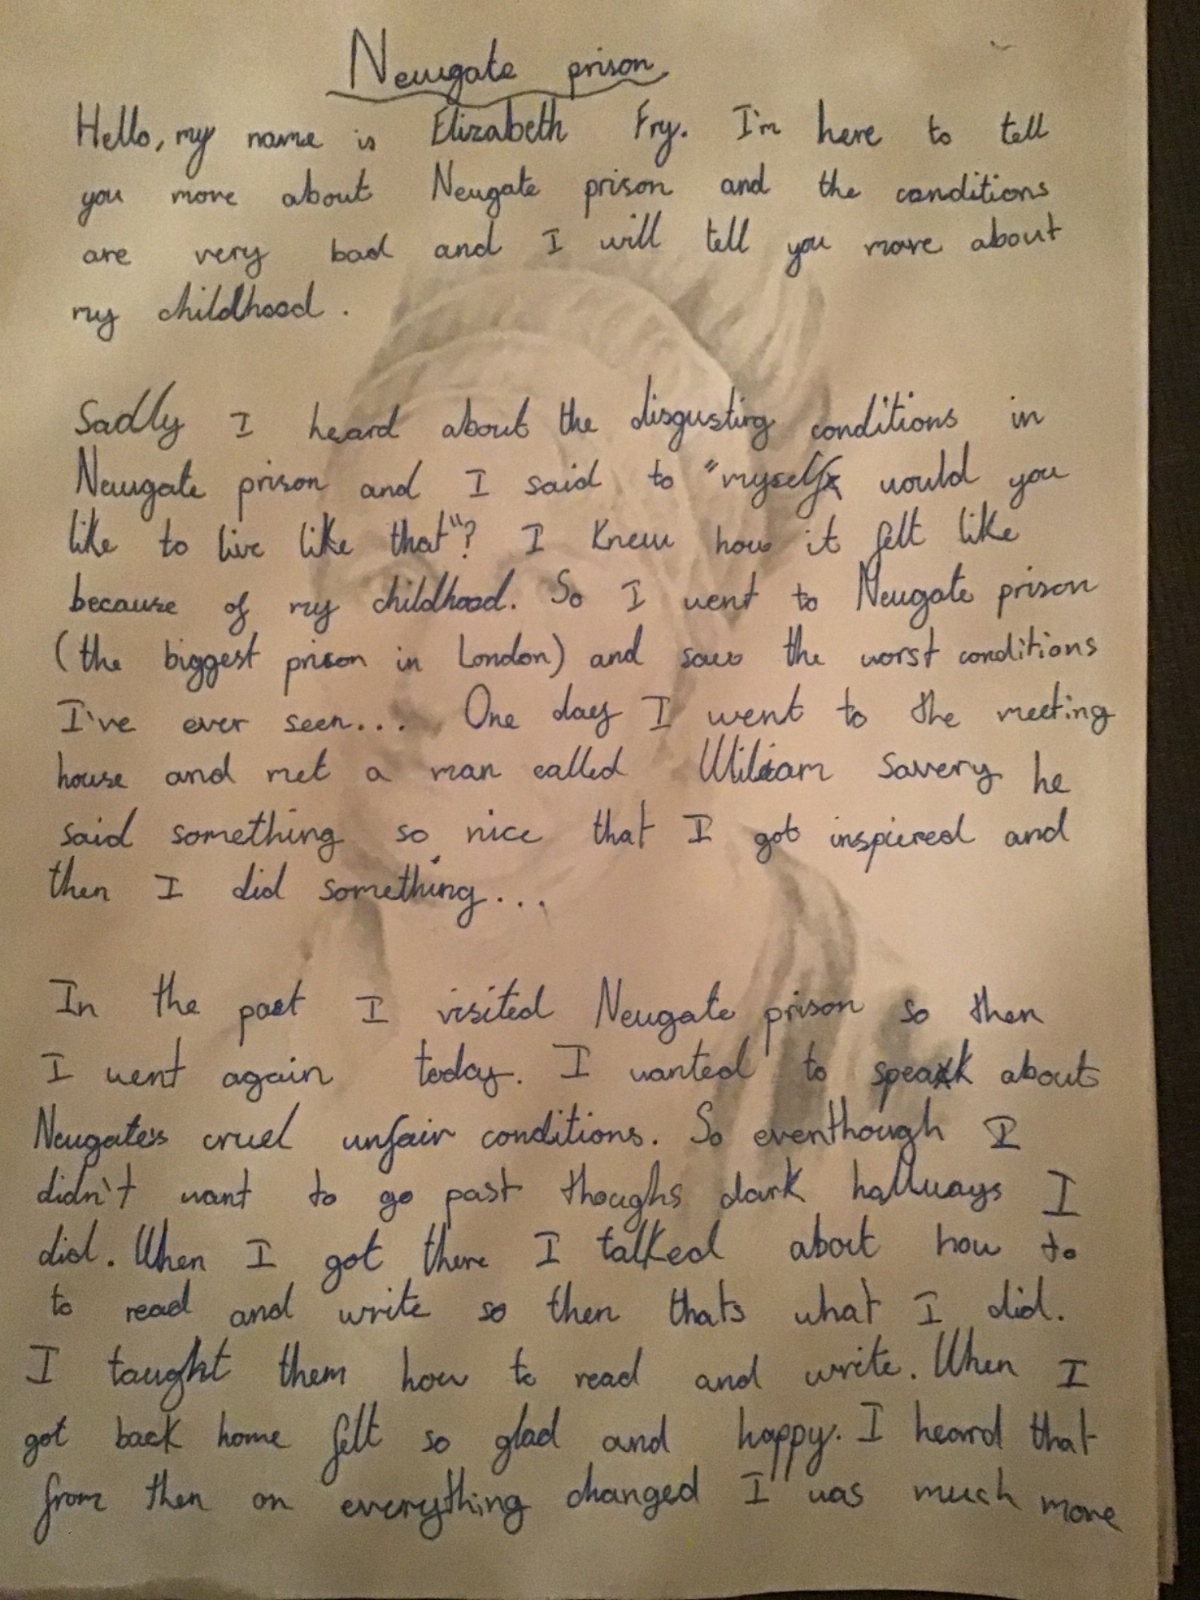 Newgate prison
Hello, my name is Elizabeth Fry. I'm here to tell
you more about Newgate prison and the conditions
are very bad and I will tell you more about
my childhood.
Sadly I heard about the disgusting conditions in
Newgate prison and I said to "myself would you
like to live like that"? I knew how it felt like
because of my childhood. So I went to Newgate prison
(the biggest prison in London) and saw the worst conditions
I've ever seen... One day I went to the meeting
house and met a man called William Savery he
said something so nice that I got inspiered and
then I did something...
In the past I visited Newgate prison so then
I went again today. I wanted to speak about
Newgate's cruel unfair conditions. So eventhough I
didn't want to go past thoughs dark hallways I
did. When I got there I talked about how to
to read and write so then thats what I did.
I taught them how to read and write. When I
got back home felt so glad and happy. I heard that
from then on everything changed I was much more